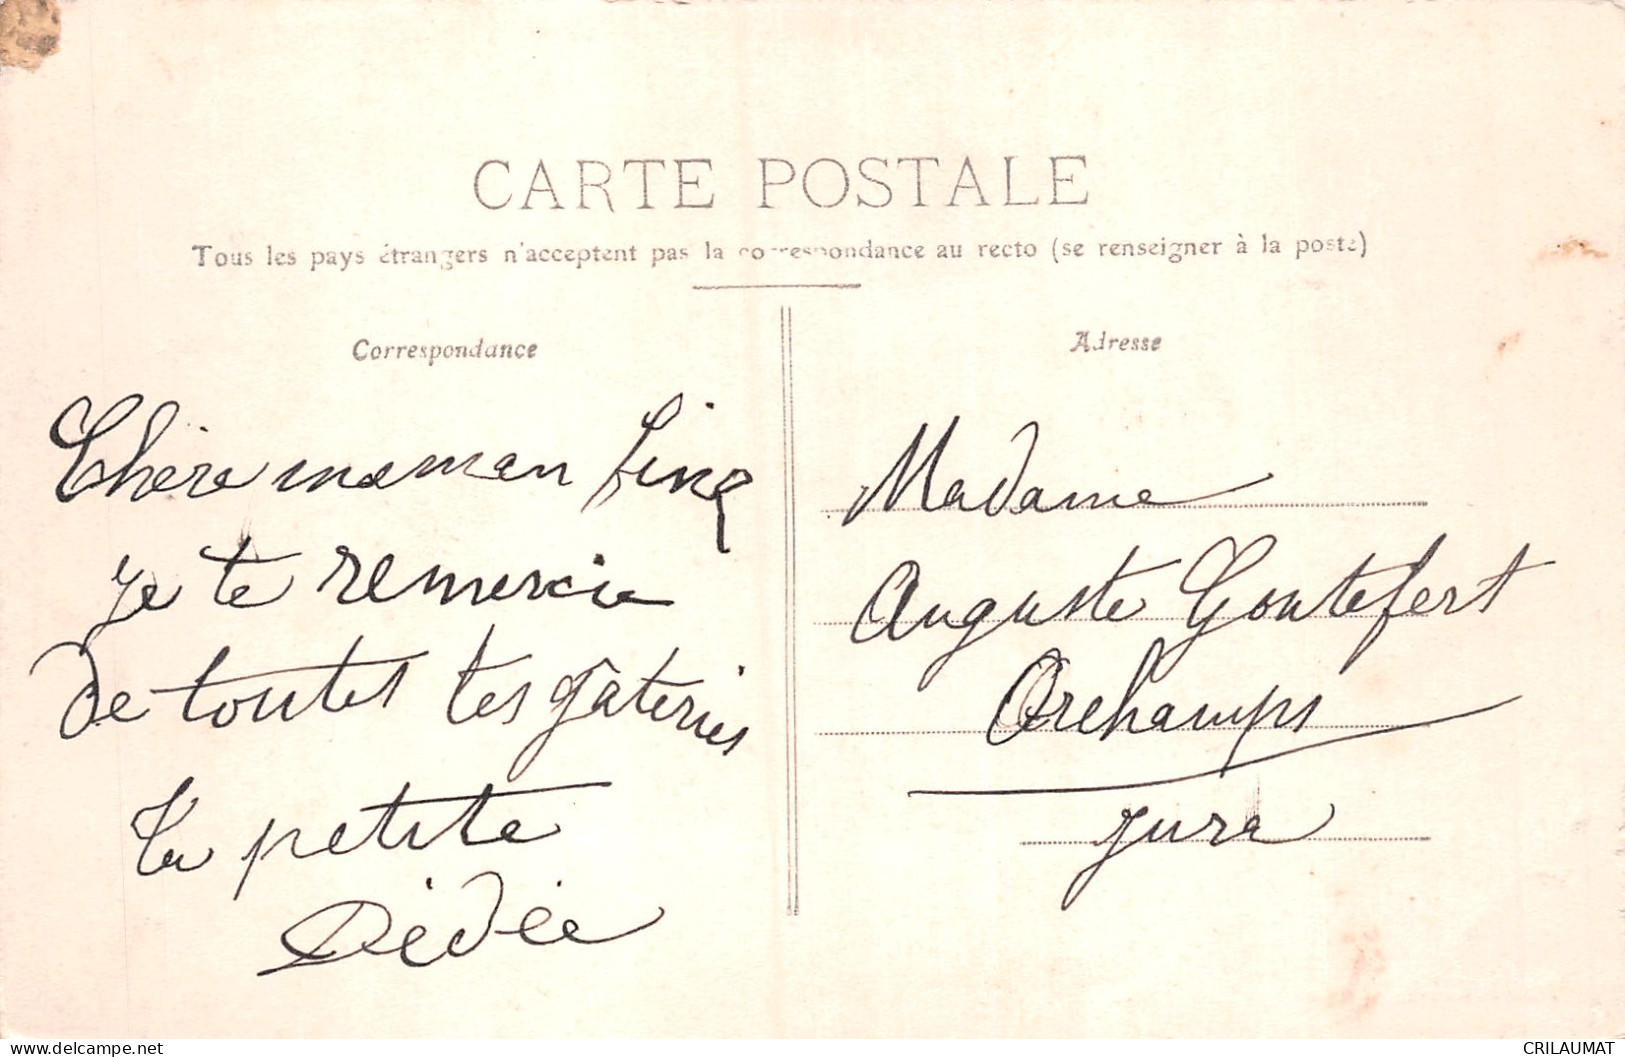 CARTE POSTALE
Tous les pays étrangers n'acceptent pas la correspondance au recto (se renseigner à la poste)
Correspondance
Chère maman Fine
je te remercie
de toutes tes gâteries
Ta petite
Dédée
Adresse
Madame
Auguste Goutefert
Orchamps
Jura
www.delcampe.net
CRILAUMAT